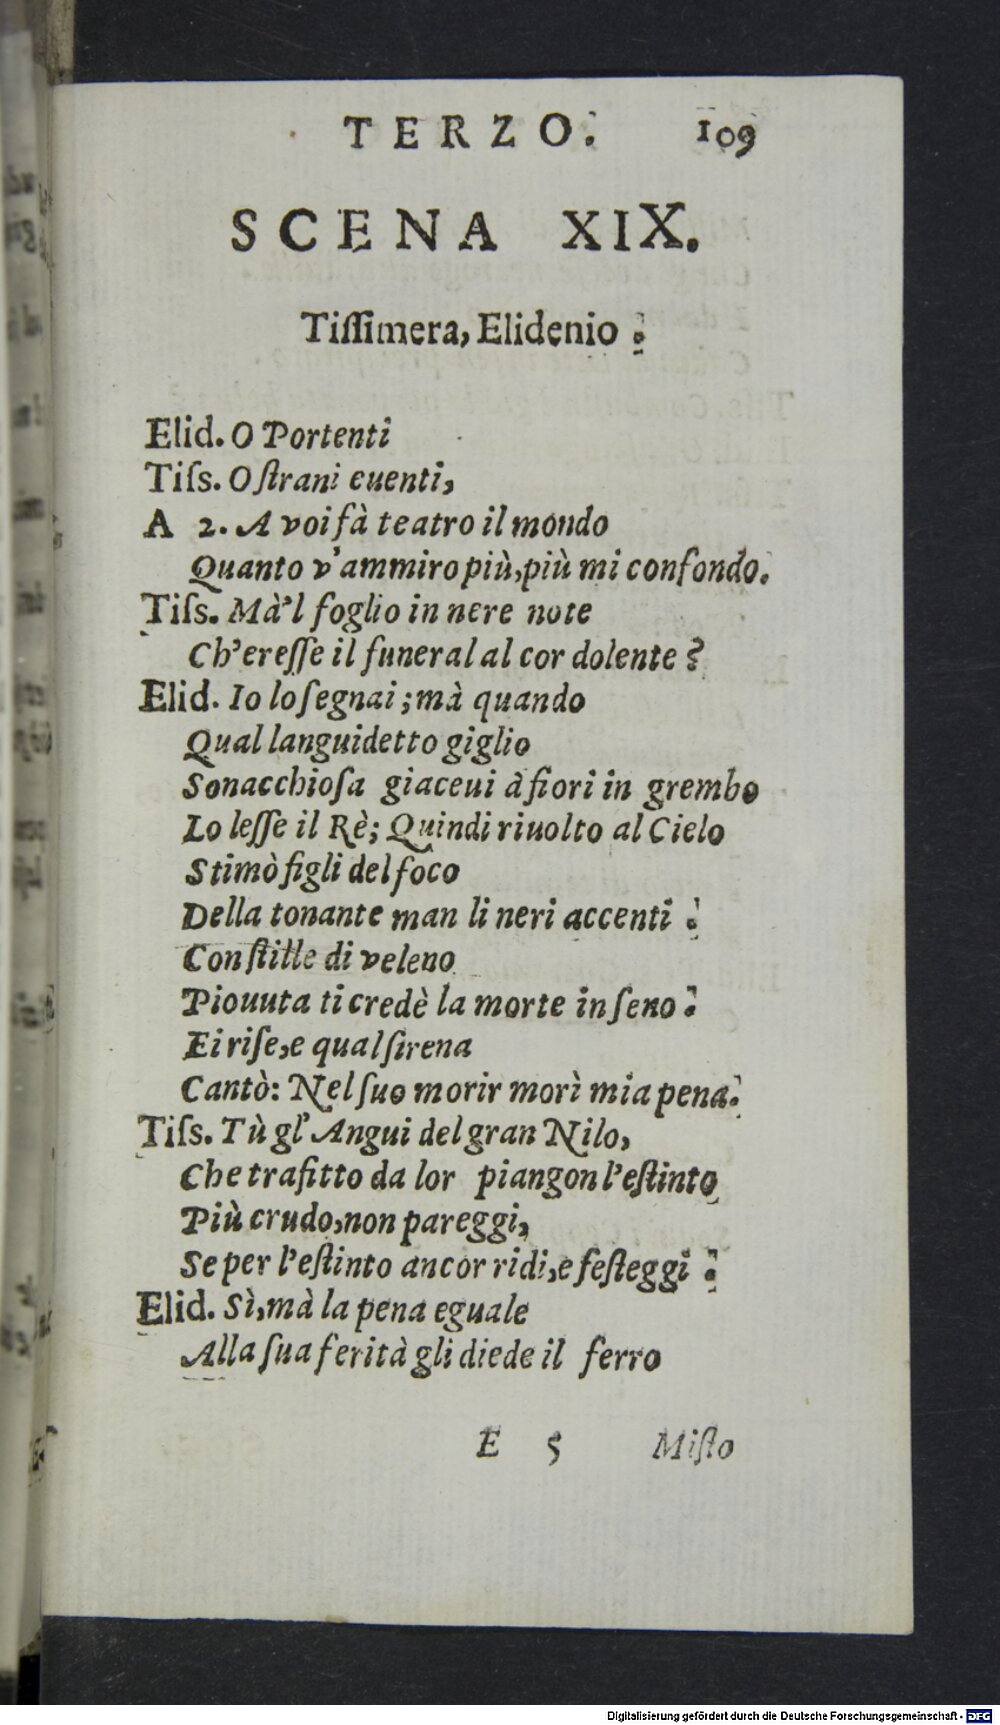 TERZO. 109
SCENA XIX.
Tiſſimera, Elidenio.
Elid. O Portenti
Tiſs. O ſtrani euenti,
A 2. A voi fà teatro il mondo
Quanto v'ammiro più, più mi confondo.
Tiſs. Mà'l foglio in nere note
Ch'ereſſe il funeral al cor dolente?
Elid. Io lo ſegnai; mà quando
Qual languidetto giglio
Sonacchioſa giaceui à fiori in grembo
Lo leſſe il Rè; Quindi riuolto al Cielo
Stimò figli del foco
Della tonante man li neri accenti.
Con ſtille di veleno
Piouuta ti credè la morte in ſeno.
Ei riſe, e qual ſirena
Cantò: Nel ſuo morir morì mia pena.
Tiſs. Tù gl'Angui del gran Nilo,
Che trafitto da lor piangon l'eſtinto
Più crudo, non pareggi,
Se per l'eſtinto ancor ridi, e feſteggi.
Elid. Sì, mà la pena eguale
Alla ſua ferità gli diede il ferro
E 5 Miſto
Digitalisierung gefördert durch die Deutsche Forschungsgemeinschaft - DFG